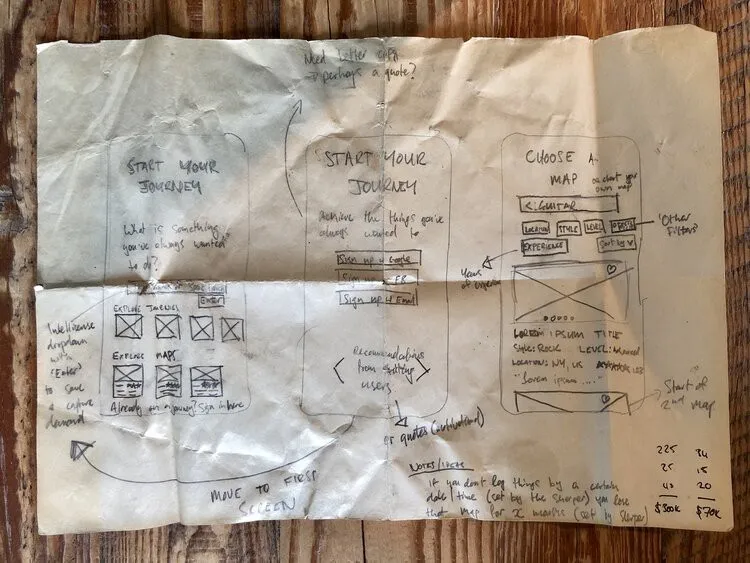 Need better copy
perhaps a quote?
START YOUR
JOURNEY
What is something
you've always wanted
to do?
Enter
EXPLORE JOURNIES
EXPLORE MAPS
Already on a journey? Sign in here
Intellisense
dropdown
with
'Enter'
to save
a future
demand
START YOUR
JOURNEY
Achieve the things you've
always wanted to
Sign up w Google
Sign up w FB
Sign up w Email
Recommendations
from existing
users
or quotes (motivational)
MOVE TO FIRST
SCREEN
CHOOSE A
MAP or chart your
own map
< GUITAR
LOCATION STYLE LEVEL
EXPERIENCE Sort by
'Other
Filters'
Years of
experience
LOREM IPSUM TITLE
STYLE: ROCK LEVEL: ADVANCED
LOCATION: NY, US
"Lorem ipsum ...."
Start of
2nd map
NOTES/IDEAS
if you don't log things by a certain
date/time (set by the sherper) you lose
that map for x months (set by sherper)
225 34
25 15
40 20
$300k $70k